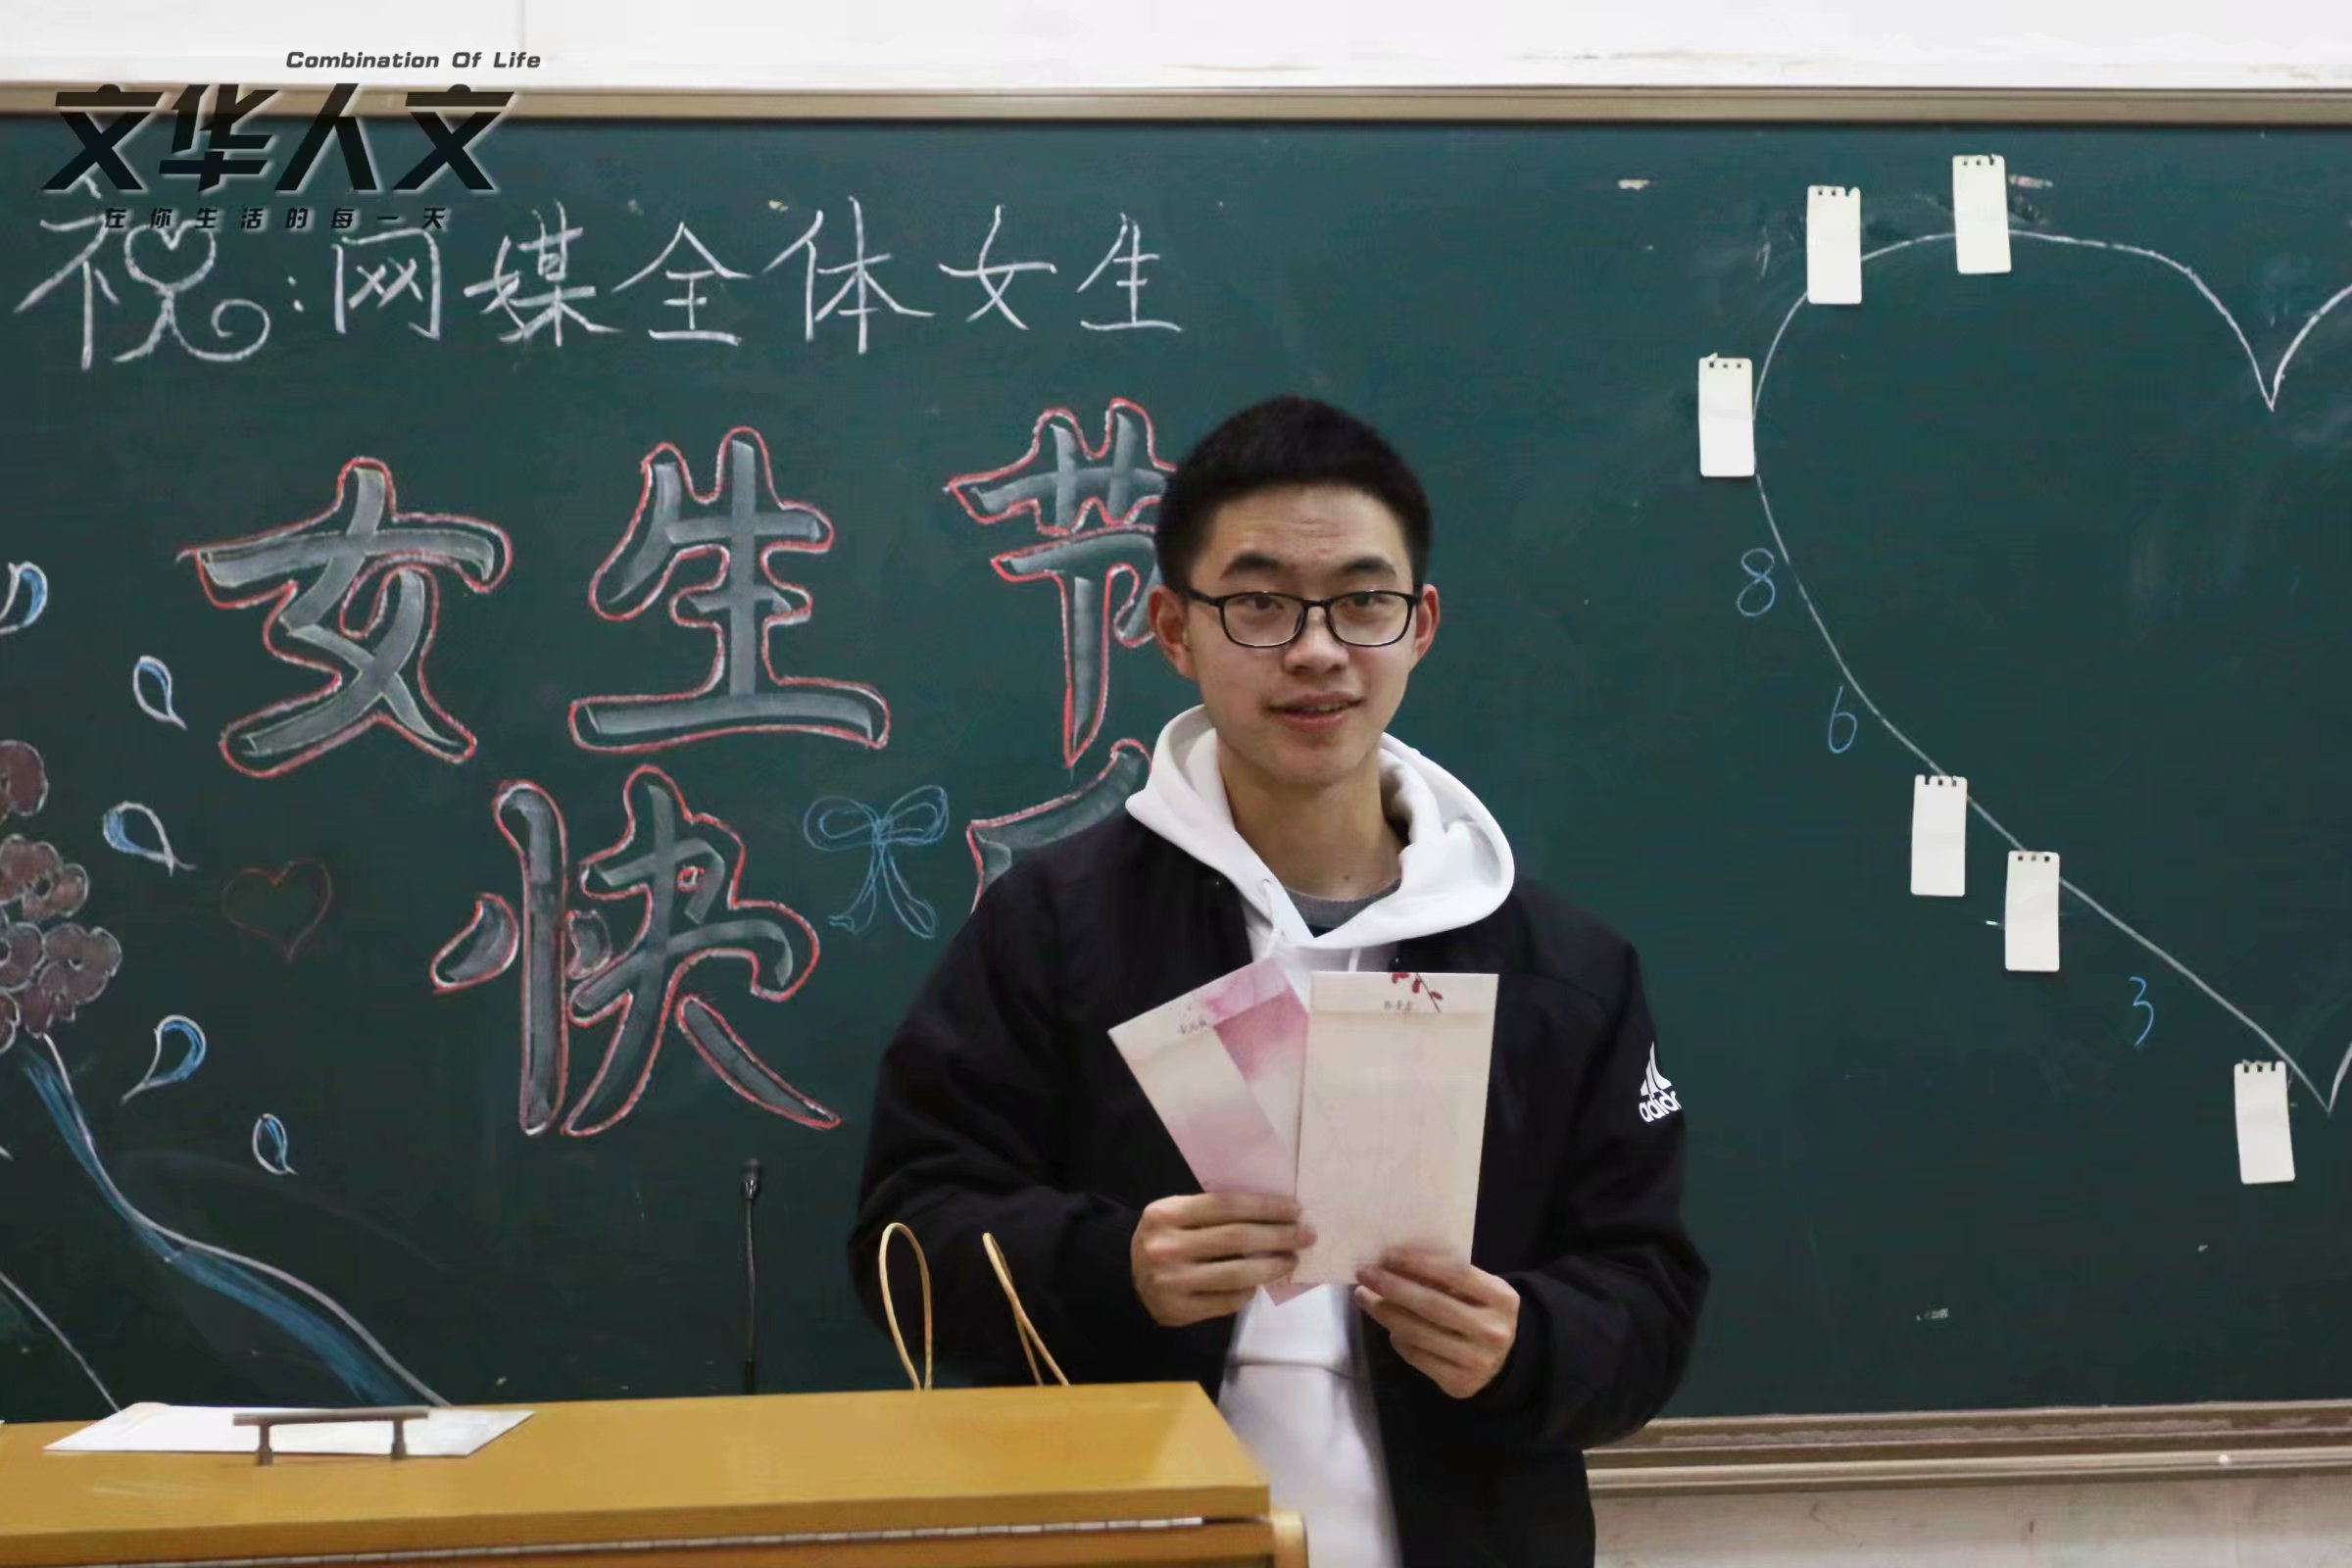 Combination Of Life
文华人文
在你生活的每一天
祝:网媒全体女生
女生节
快
8
6
3
adida